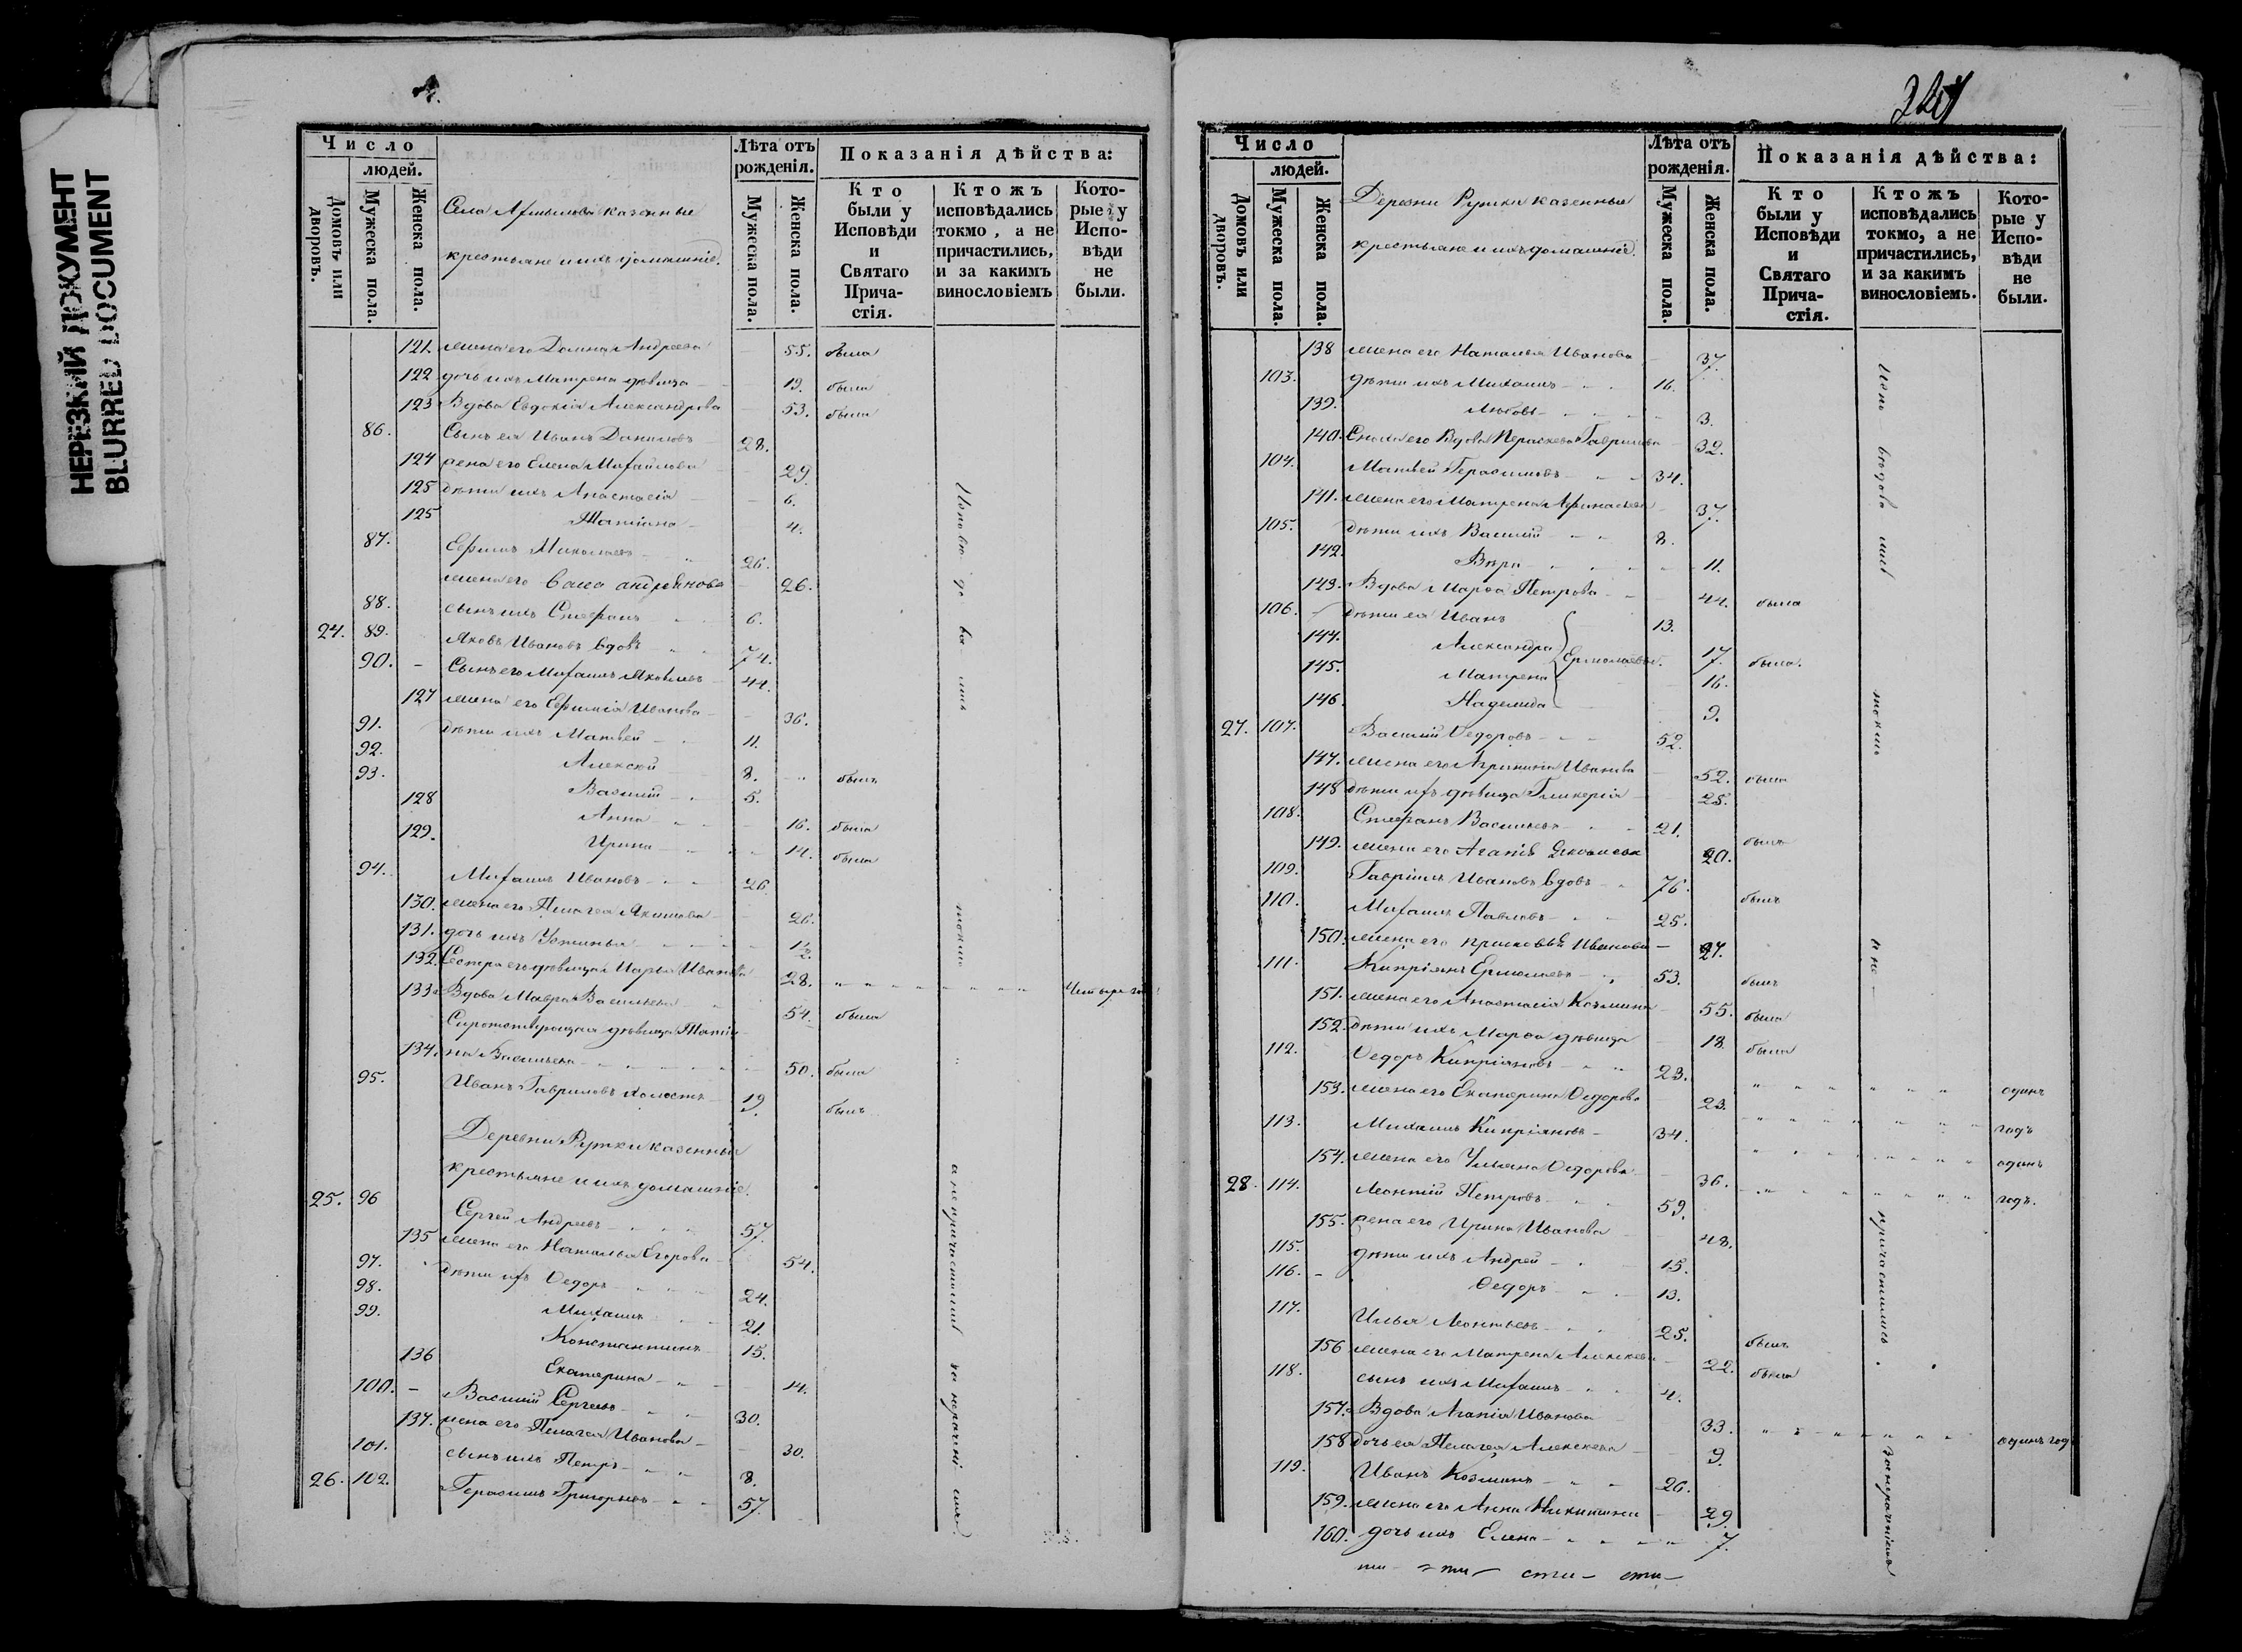 НЕРЕЗКИЙ ДОКУМЕНТ
BLURRED DOCUMENT
4.
Число
людей.
Домовъ или дворовъ.
Мужеска пола.
Женска пола.
Села казенные
крестьяне и ихъ домашніе.
Лѣта отъ рожденія.
Мужеска пола.
Женска пола.
Показанія дѣйства:
Кто были у Исповѣди и Святаго Причастія.
Ктожъ исповѣдались токмо, а не причастились, и за какимъ винословіемъ
Которые у Исповѣди не были.
121. жена его Домна Андреева 55. была
122 дочь ихъ Матрена дѣвица 19. была
123 Вдова Евдокія Александрова 53. была
86. Сынъ ея Иванъ Даниловъ 28.
124 жена его Елена Михайлова 29
125 дѣти ихъ Анастасія 6.
125 Татіана 4.
87. Ефимъ Николаевъ 26.
жена его 26.
88. сынъ ихъ Стефанъ 6.
24. 89. Яковъ Ивановъ вдовъ 74.
90. Сынъ его Михаилъ Яковлевъ 44.
127 жена его Евфимія Иванова 36.
91. дѣти ихъ Матвей 11.
92. Алексѣй 8. былъ
93. Василій 5.
128 Анна 16. была
129. Ирина 14. была
94. Михаилъ Ивановъ 26
130. жена его Пелагея Якимова 26.
131. дочь ихъ Устинья 1/2
132. Сестра его дѣвица Марья Иванова 28. Четыре года
133 Вдова Мавра Васильева 54. была
Сиротствующая дѣвица Татіа-
134. на Васильева 50. была
95. Иванъ Гавриловъ холостъ 19 былъ
Деревни Рутки казенные
крестьяне и ихъ домашніе.
25. 96 Сергей Андреевъ 57.
135 жена его Наталья Егорова 54.
97. дѣти ихъ Ѳедоръ 24.
98. Михаилъ 21.
99. Константинъ 15.
136 Екатерина 14.
100. Василій Сергеевъ 30.
137. жена его Пелагея Иванова 30.
101. сынъ ихъ Петръ 8.
26. 102. Герасимъ Григорьевъ 57.
Исповѣдовались токмо а не причастились за нераченіемъ
Число
людей.
Домовъ или дворовъ.
Мужеска пола.
Женска пола.
Деревни Рутки казенные
крестьяне и ихъ домашніе.
Лѣта отъ рожденія.
Мужеска пола.
Женска пола.
Показанія дѣйства:
Кто были у Исповѣди и Святаго Причастія.
Ктожъ исповѣдались токмо, а не причастились, и за какимъ винословіемъ.
Которые у Исповѣди не были.
138 жена его Наталья Иванова 37.
103. дѣти ихъ Михаилъ 16.
139. Любовь 3.
140. Сноха его Вдова Параскева Гаврилова 32.
104. Матвей Герасимовъ 34.
141. жена его Матрена Афанасьева 37.
105. дѣти ихъ Василій 8.
142. Вѣра 11.
143. Вдова Марѳа Петрова 44. была
106. дѣти ея Иванъ 13.
144. Александра Ермолаевы. 17. была.
145. Матрена 16.
146. Надежда 9.
27. 107. Василій Ѳедоровъ 52.
147. жена его Агрипина Иванова 52. была
148 дѣти ихъ дѣвица Гликерія 25.
108. Стефанъ Васильевъ 21. былъ
149. жена его Агапія Яковлева 20.
109. Гавріилъ Ивановъ вдовъ 76. былъ
110. Михаилъ Павловъ 25.
150. жена его Прасковья Иванова 27.
111. Кипріянъ Ермолаевъ 53. былъ
151. жена его Анастасія Козмина 55. была
152. дѣти ихъ Марѳа дѣвица 18. была
112. Ѳедоръ Кипріяновъ 23. одинъ
153. жена его Екатерина Ѳедорова 23. годъ
113. Михаилъ Кипріяновъ 34. одинъ
154. жена его Ульяна Ѳедорова 36. годъ.
28. 114. Леонтій Петровъ 59.
155. жена его Ирина Иванова 48.
115. дѣти ихъ Андрей 15.
116. Ѳедоръ 13.
117. Илья Леонтьевъ 25. былъ
156 жена его Матрена Алексеева 22. была
118. сынъ ихъ Михаилъ 4.
157. Вдова Агапія Иванова 33. одинъ год
158 дочь ея Пелагея Алексеева 9.
119. Иванъ Козминъ 26.
159. жена его Анна Никитина 29.
160. дочь ихъ Елена 7.
Исповѣдовались токмо а не причастились за нераченіемъ